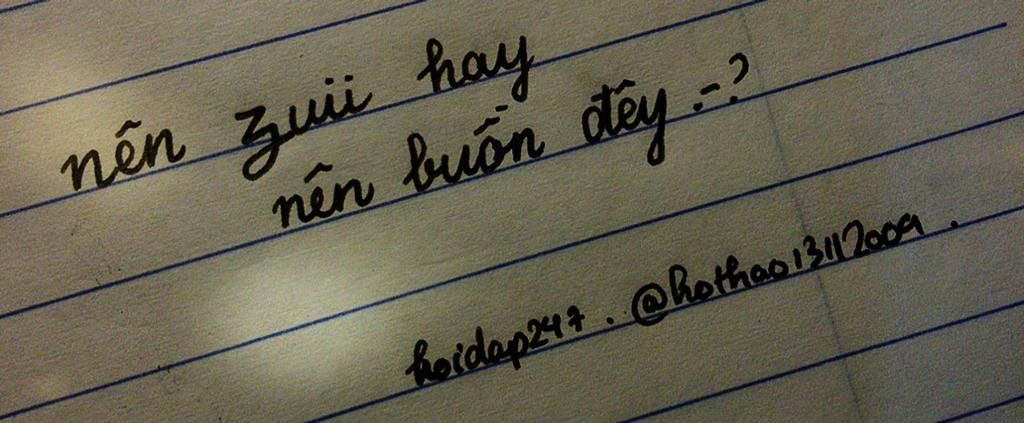 nên zuii hay
nên buồn đêy .-?
hoidap247 . @hothao13112009 .